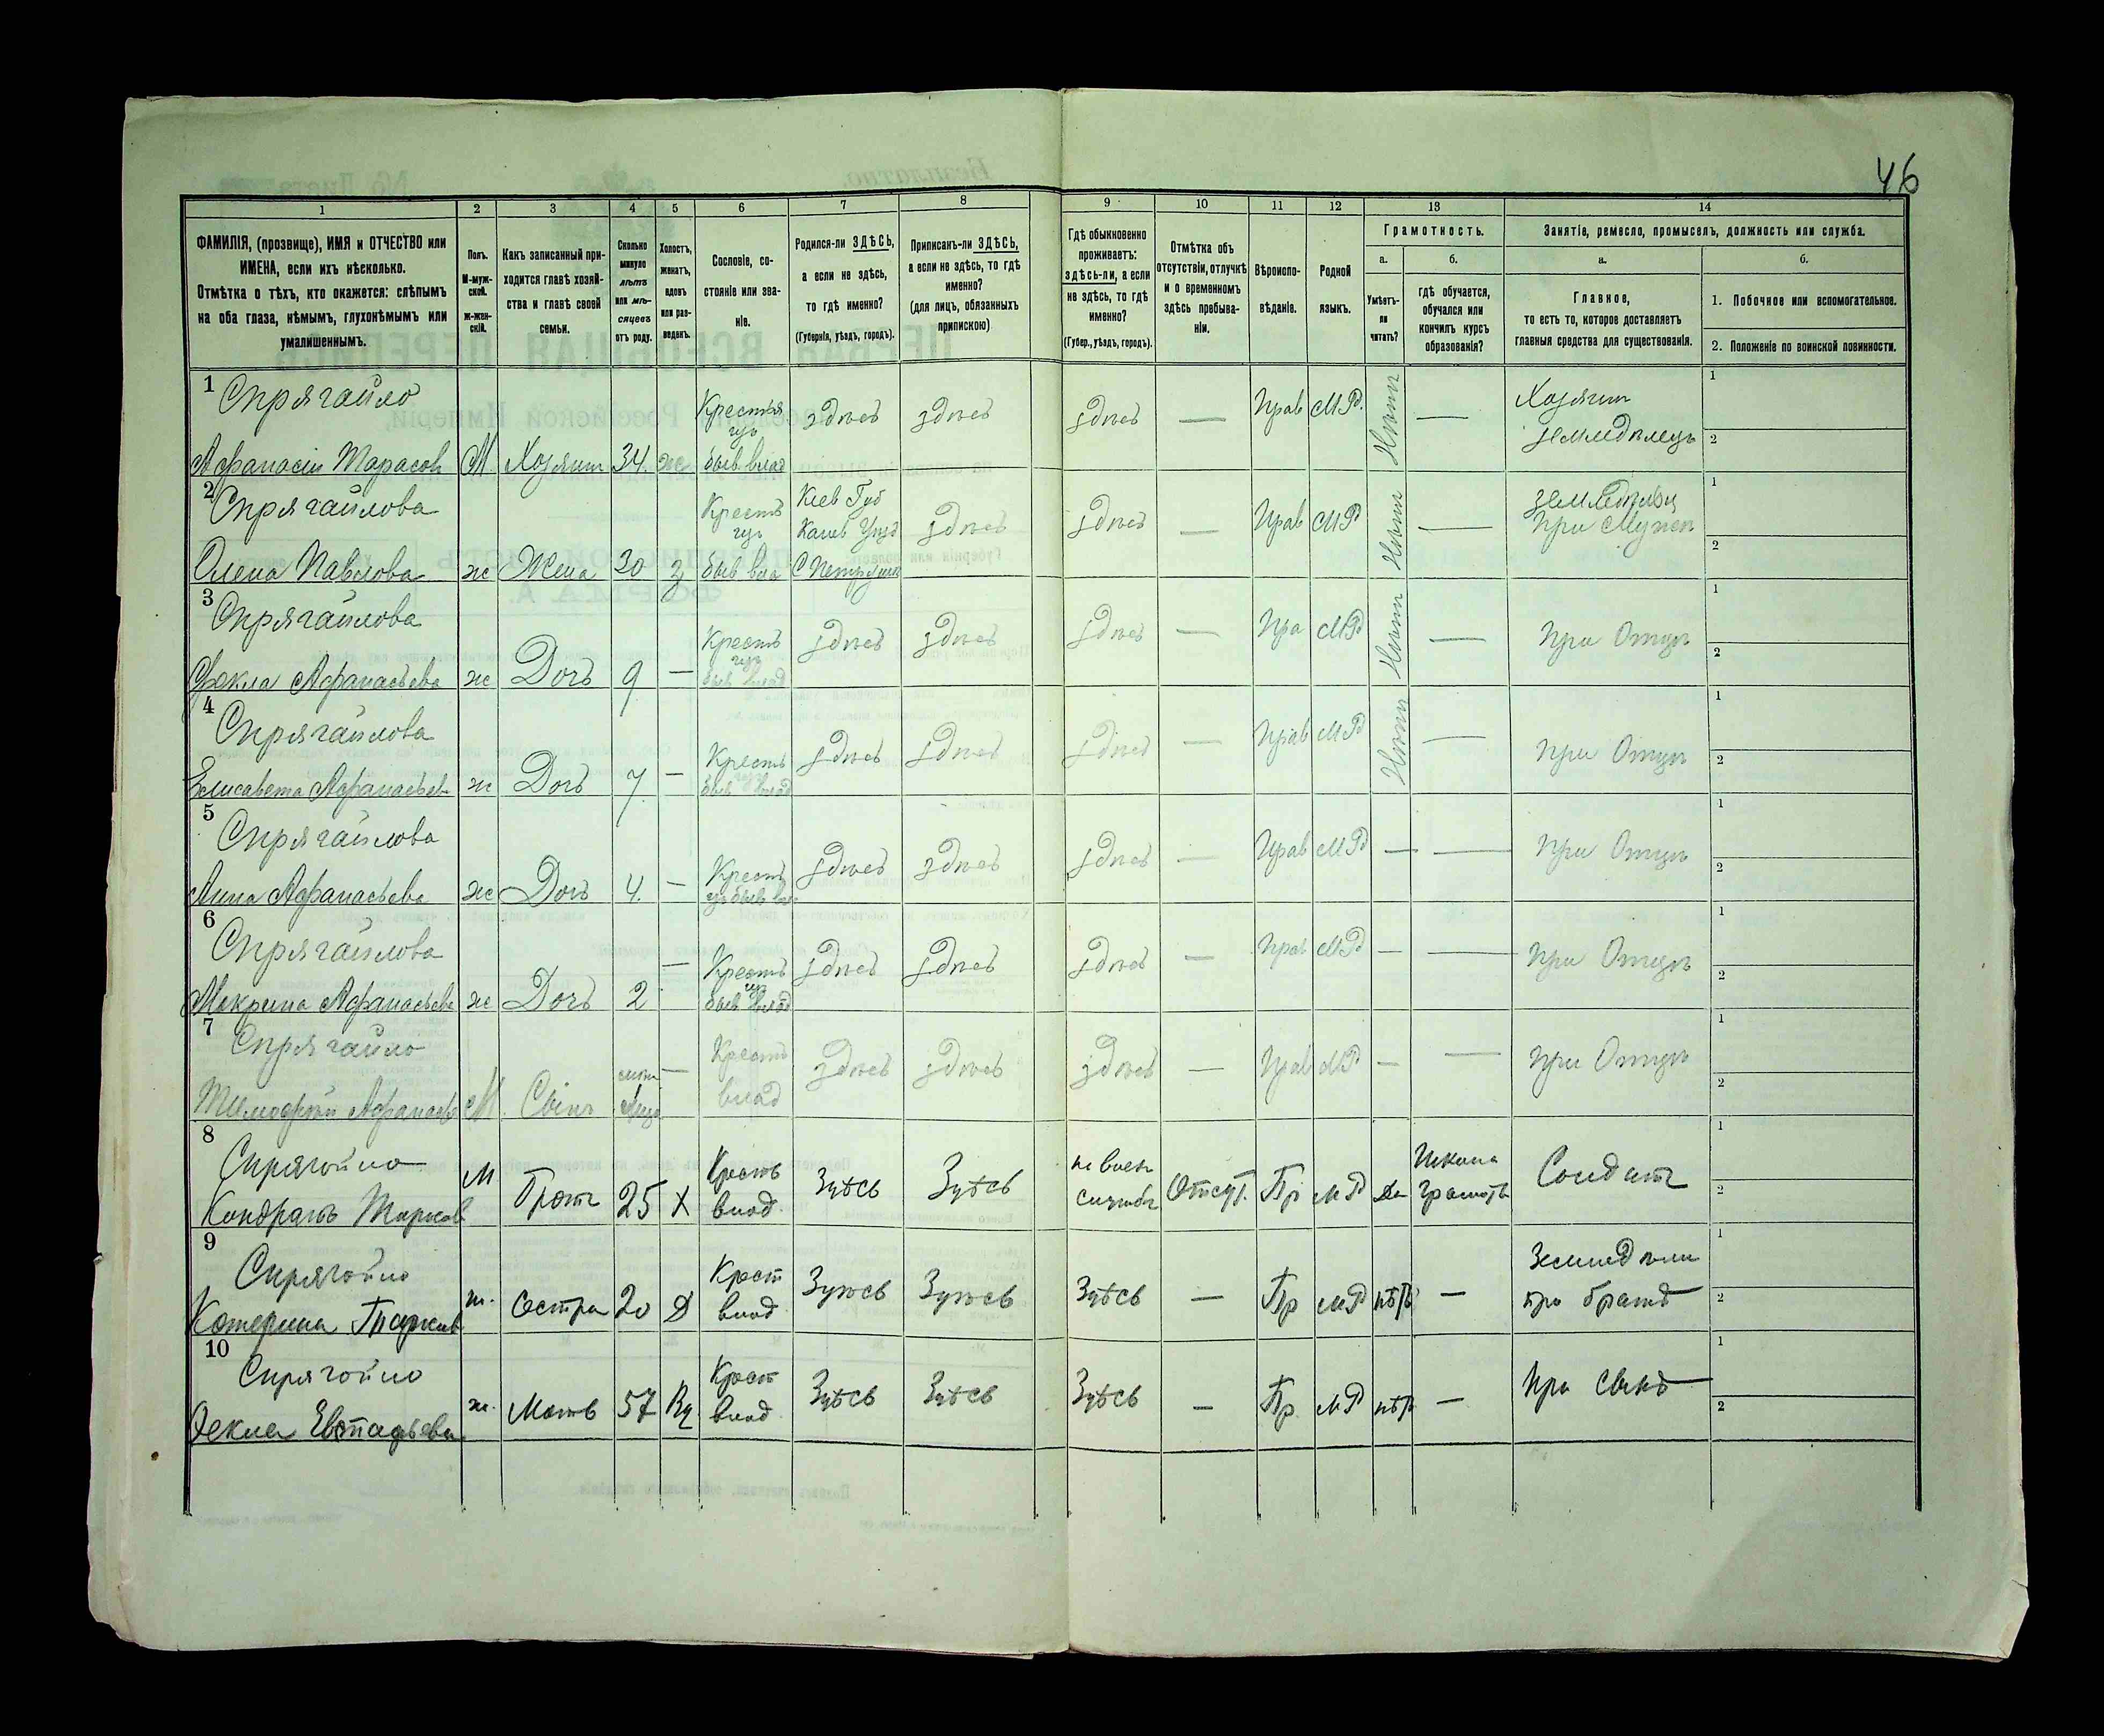 46
1
2
3
4
5
6
7
8
9
10
11
12
13
14
ФАМИЛІЯ, (прозвище), ИМЯ и ОТЧЕСТВО или
ИМЕНА, если ихъ нѣсколько.
Отмѣтка о тѣхъ, кто окажется: слѣпымъ
на оба глаза, нѣмымъ, глухонѣмымъ или
умалишеннымъ.
Полъ.
М-муж-
ской.
Ж-жен-
скій.
Какъ записанный при-
ходится главѣ хозяй-
ства и главѣ своей
семьи.
Сколько
минуло
лѣтъ
или мѣ-
сяцевъ
отъ роду.
Холостъ,
женатъ,
вдовъ
или раз-
веденъ.
Сословіе, со-
стояніе или зва-
ніе.
Родился-ли ЗДѢСЬ,
а если не здѣсь,
то гдѣ именно?
(Губернія, уѣздъ, городъ).
Приписанъ-ли ЗДѢСЬ,
а если не здѣсь, то гдѣ
именно?
(для лицъ, обязанныхъ
припискою)
Гдѣ обыкновенно
проживаетъ:
здѣсь-ли, а если
не здѣсь, то гдѣ
именно?
(Губер., уѣздъ, городъ).
Отмѣтка объ
отсутствіи, отлучкѣ
и о временномъ
здѣсь пребыва-
ніи.
Вѣроиспо-
вѣданіе.
Родной
языкъ.
Грамотность.
а.
б.
Умѣетъ-
ли
читать?
гдѣ обучается,
обучался или
кончилъ курсъ
образованія?
Занятіе, ремесло, промыселъ, должность или служба.
а.
б.
Главное,
то есть то, которое доставляетъ
главныя средства для существованія.
1. Побочное или вспомогательное.
2. Положеніе по воинской повинности.
1 Спрягайло
Афанасій Тарасов М Хозяин 34. ж
Крестья
быв влад
здѣсь здѣсь здѣсь — Прав МР. Нѣтъ —
Хозяин
земледѣлецъ
1
2
2 Спрягайлова
Олена Павлова ж Жена 30 з
Крестъ
быв вла
Кіев Губ
Канев Уѣзд
здѣсь здѣсь — Прав МР Нѣтъ —
при Мужѣ
1
2
3 Спрягайлова
Фекла Афанасьева ж Дочь 9 —
Крестъ
быв влад
здѣсь здѣсь здѣсь — Пра МР Нѣтъ — при Отцѣ
1
2
4 Спрягайлова
Елисавета Афанасьев ж Дочь 7 —
Крестъ
быв влад
здѣсь здѣсь здѣсь — Прав МР Нѣтъ — при Отцѣ
1
2
5 Спрягайлова
Анна Афанасьева ж Дочь 4. —
Крестъ
быв
здѣсь здѣсь здѣсь — Прав МР — — при Отцѣ
1
2
6 Спрягайлова
Макрина Афанасьева ж Дочь 2 —
Крестъ
быв влад
здѣсь здѣсь здѣсь — Прав МР — — при Отцѣ
1
2
7 Спрягайло
Тимофей Афанасьев М. Сынъ —
Крестъ
влад
здѣсь здѣсь здѣсь — Прав МР — — при Отцѣ
1
2
8 Спрягайло
Кондратъ Тарасов М Братъ 25 Х
Кресть
влад.
Здѣсь Здѣсь
на воен
службѣ
Отсут. Пр МР Да
Школа
грамоты
Солдатъ
1
2
9 Спрягайло
Катерина Тарасов ж. Сестра 20 Д
Крест
влад.
Здѣсь Здѣсь Здѣсь — Пр МР нѣтъ —
при братѣ
1
2
10 Спрягайло
Фекла Евстафьева ж. Мать 57 Вд
Крест
влад.
Здѣсь Здѣсь Здѣсь — Пр. МР нѣтъ — При сынѣ
1
2